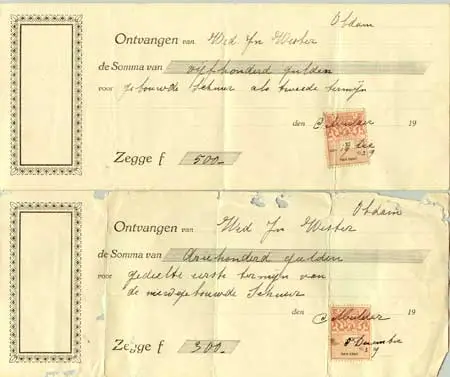 Obdam
Ontvangen van Wed Jn Wester
de Somma van vijfhonderd gulden
voor gebouwde Schuur als tweede termijn
den C Mulder 19
19 Dec
Zegge f 500-
Obdam
Ontvangen van Wed Jn Wester
de Somma van driehonderd gulden
voor gedeelte eerste termijn van
de nieuwgebouwde Schuur
den C Mulder 19
December
Zegge f 300-